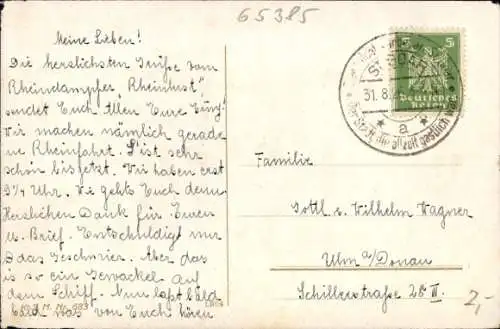 65385
Meine Lieben!
Die herzlichsten Grüße vom
Rheindampfer "Rheinlust",
sendet Euch Allen Eure
Wir machen nämlich gerade
ne Rheinfahrt. S'ist sehr
schön bis jetzt. Wir haben erst
9¼ Uhr. Wie gehts Euch denn
Herzlichen Dank für Euren
u. Brief. Entschuldigt nur
das Geschmier. Aber das
is so ein Gewackel auf
dem Schiff. Nun laßt bald
was von Euch hören
5
31.8.
Deutsches
* a *
Familie
Gottl. u. Wilhelm Wagner
Ulm a/Donau
Schillerstraße 28 III
2,-